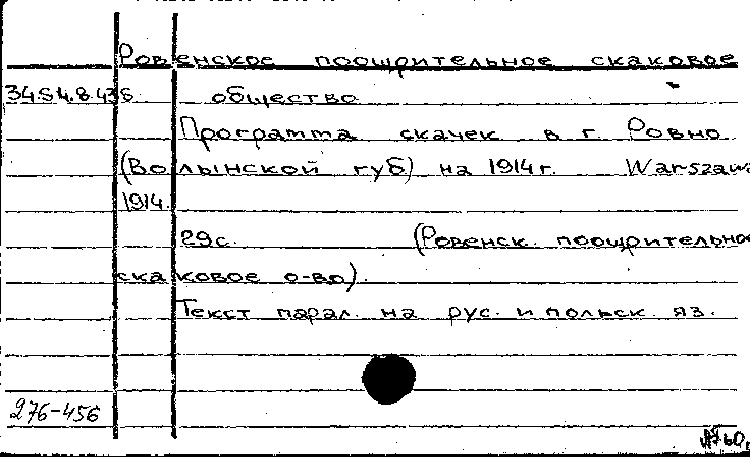 Ровенское поощрительное скаковое
34.54.8.436 общество
Программа скачек в г. Ровно
(Волынской губ) на 1914 г. Warszawa
1914.
29с. (Ровенск. поощрительное
скаковое о-во).
Текст парал. на рус. и польск. яз.
276-456